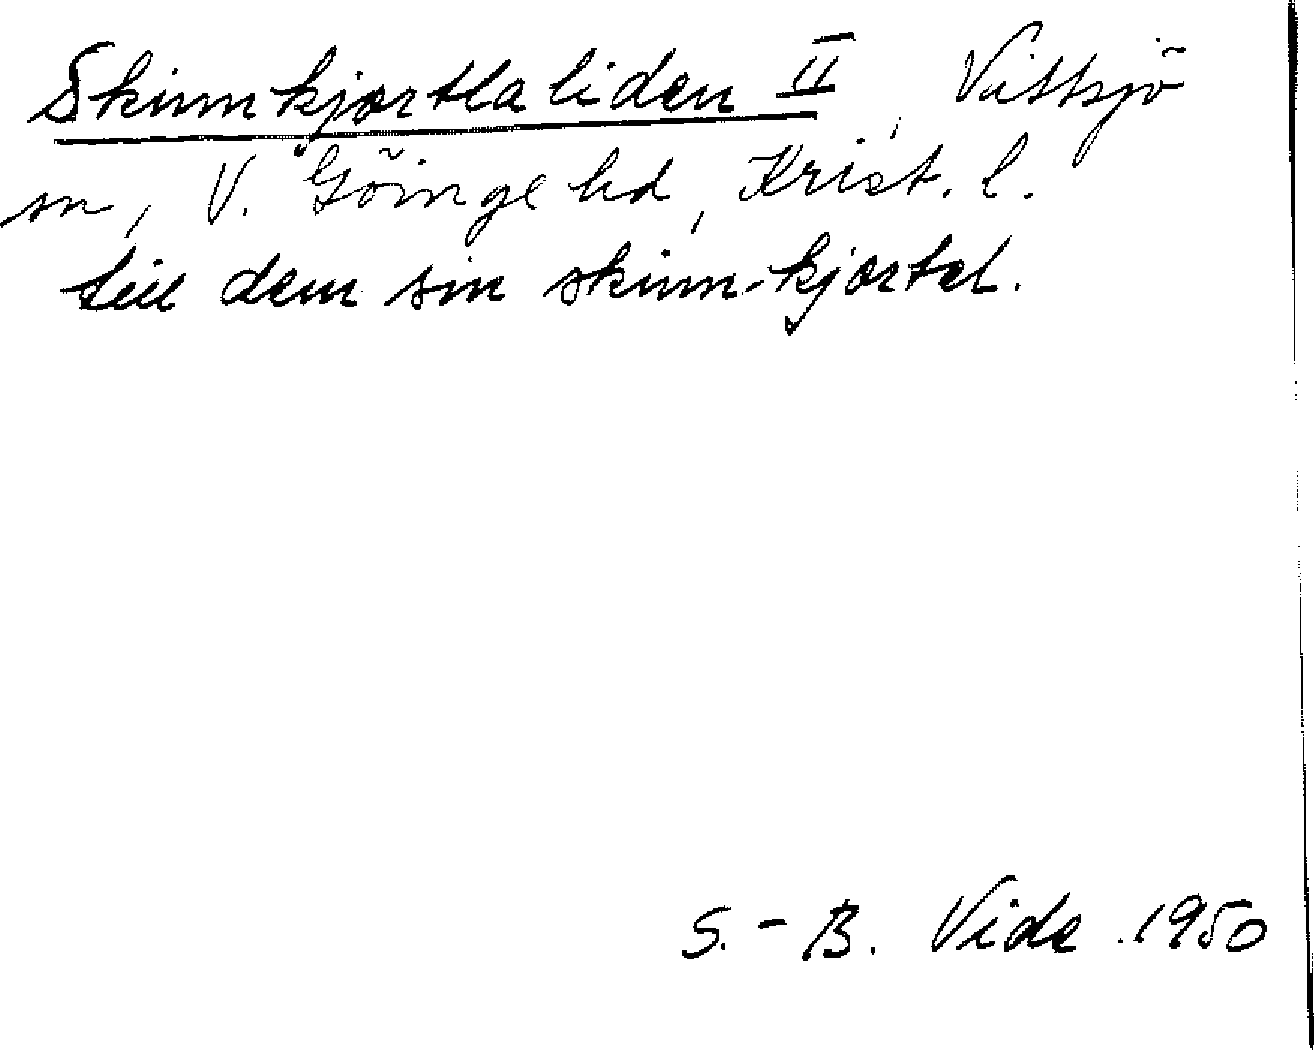 Skinnkjortlaliden II, Vittsjö
sn, V. Göinge hd, Krist. l.
till dem sin skinn-kjortel.
S.-B. Vide 1950